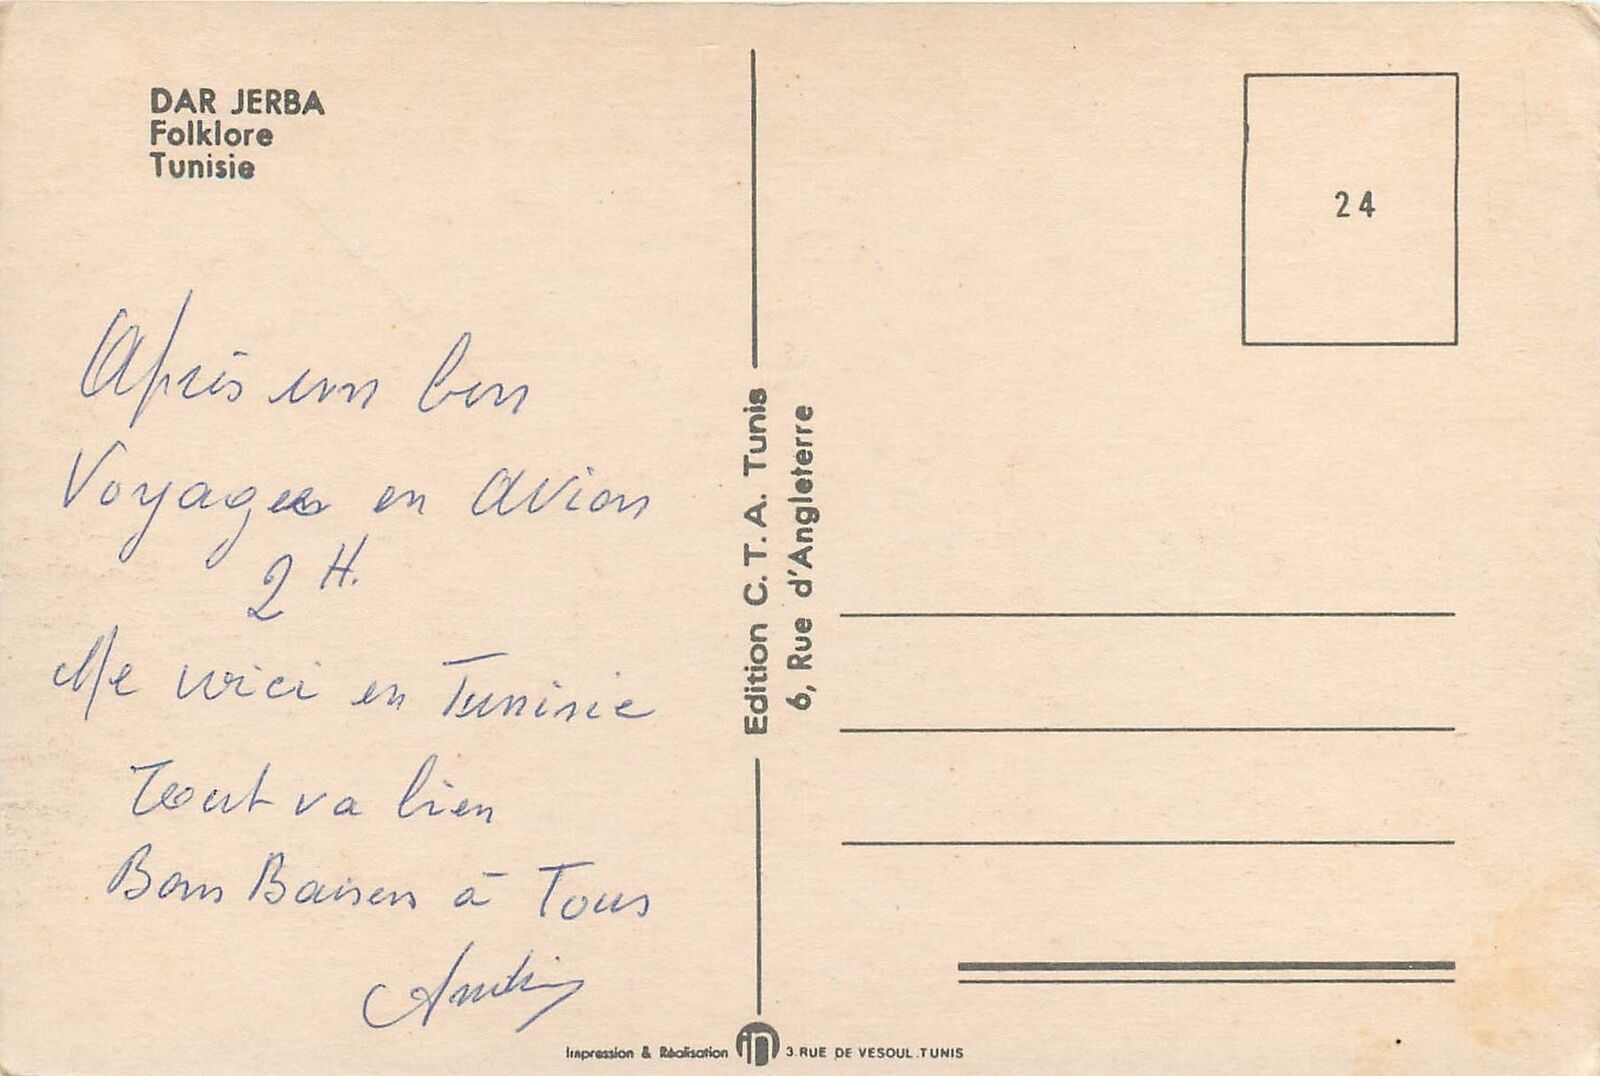 DAR JERBA
Folklore
Tunisie
Après un bon
Voyage en avion
2 H.
Me voici en Tunisie
Tout va bien
Bons Baisers à Tous
Edition C. T. A. Tunis
6, Rue d'Angleterre
24
Impression & Réalisation ip 3. RUE DE VESOUL. TUNIS